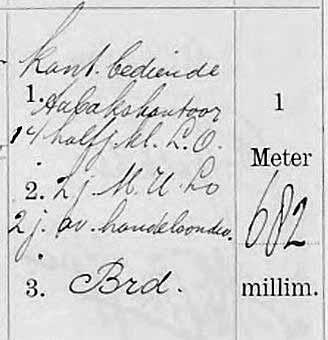 kant. bediende
1. tabakskantoor
1 4 half j. kl. L.O.
2. 2 j. M.U.Lo
2 j. av. handelsondw.
3. Brd.
1
Meter
682
millim.